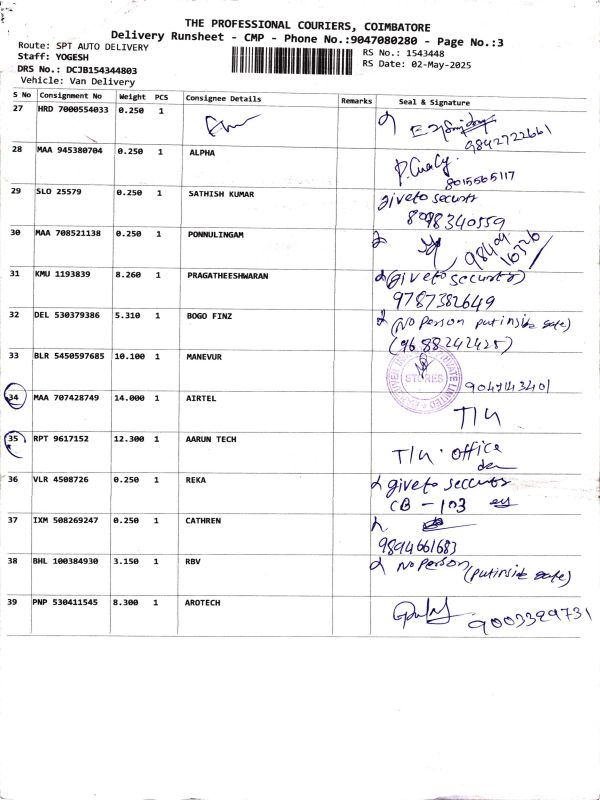 THE PROFESSIONAL COURIERS, COIMBATORE
Delivery Runsheet - CMP - Phone No.:9047080280 - Page No.:3
Route: SPT AUTO DELIVERY
RS No.: 1543448
Staff: YOGESH
RS Date: 02-May-2025
DRS No.: DCJB154344803
Vehicle: Van Delivery
S No Consignment No Weight PCS Consignee Details Remarks Seal & Signature
27 HRD 7000554033 0.250 1
9842722661
28 MAA 945380704 0.250 1 ALPHA
8015565117
29 SLO 25579 0.250 1 SATHISH KUMAR giveto security
8098340559
30 MAA 708521138 0.250 1 PONNULINGAM
98409 16326
31 KMU 1193839 8.260 1 PRAGATHEESHWARAN (giveto security)
9787382649
32 DEL 530379386 5.310 1 BOGO FINZ (No person putinside gate)
(9688242425)
33 BLR 5450597685 10.100 1 MANEVUR
STORES
9047143401
34 MAA 707428749 14.000 1 AIRTEL T/4
35 RPT 9617152 12.300 1 AARUN TECH T/4. office
36 VLR 4508726 0.250 1 REKA giveto security
CB - 103
37 IXM 508269247 0.250 1 CATHREN
9894661683
38 BHL 100384930 3.150 1 RBV No person (putinside gate)
39 PNP 530411545 8.300 1 AROTECH 9003329731